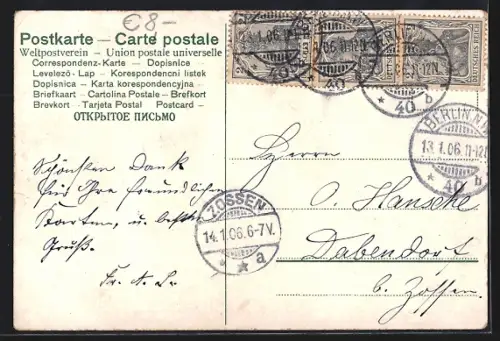 € 8-
Postkarte — Carte postale
Weltpostverein — Union postale universelle
Correspondenz-Karte — Dopisnice
Levelező-Lap — Korespondencni listek
Dopisnica — Karta korespondencyjna
Briefkaart — Cartolina Postale — Brefkort
Brevkort — Tarjeta Postal — Postcard —
ОТКРЫТОЕ ПИСЬМО
Schönsten Dank
für Ihre freundlichen
Karten, u. besten
Gruß.
Herrn
O. Hansche
Dabendorf
b. Zossen.
BERLIN N.W.
13.1.06.11-12N
40 b
ZOSSEN
14.1.06.6-7V.
a